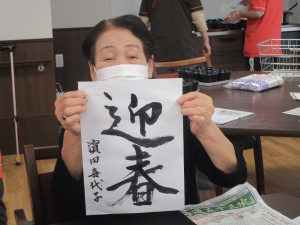 迎春
濵田喜代子